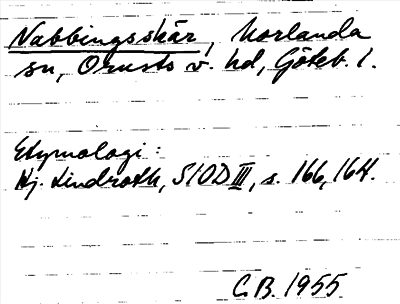 Nabbingsskär, Morlanda
sn, Orusts v. hd, Göteb. l.
Etymologi:
Hj. Lindroth, SIOD III, s. 166, 164.
G B. 1955